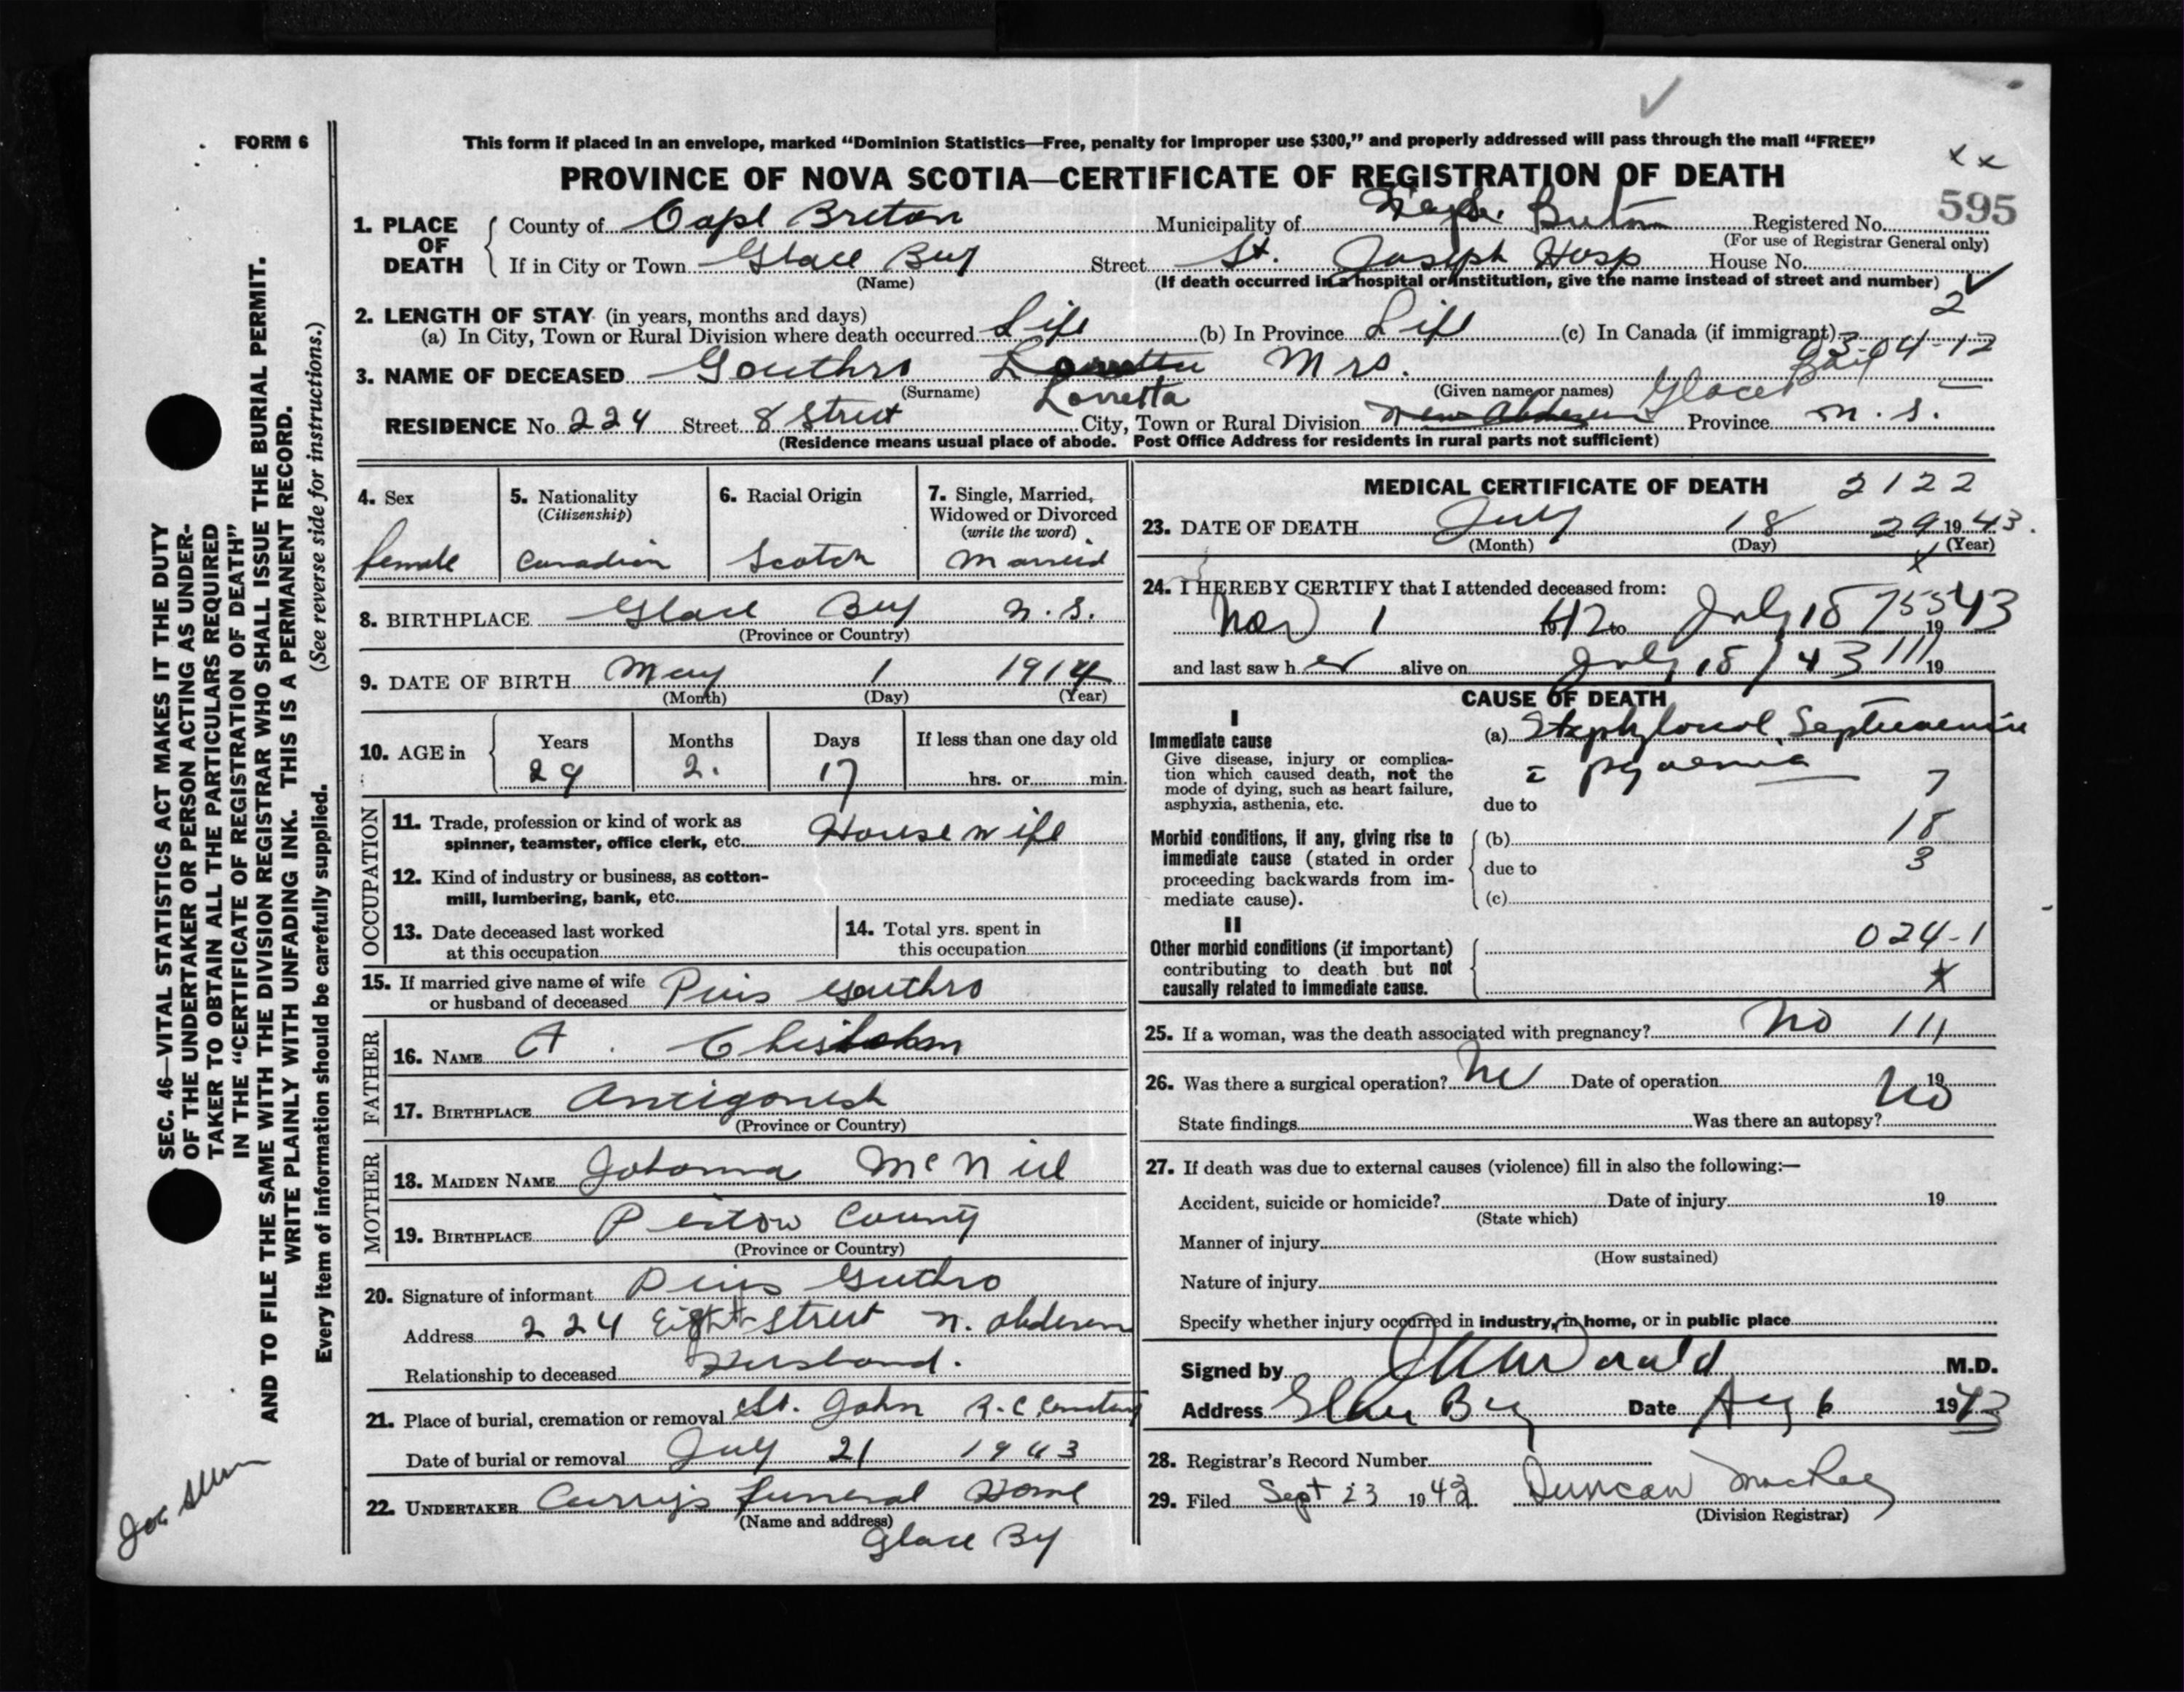 FORM 6
This form if placed in an envelope, marked “Dominion Statistics—Free, penalty for improper use $300,” and properly addressed will pass through the mail “FREE”
x x
PROVINCE OF NOVA SCOTIA—CERTIFICATE OF REGISTRATION OF DEATH
595
1. PLACE OF DEATH
County of Cape Breton Municipality of Cape Breton Registered No.
(For use of Registrar General only)
If in City or Town Glace Bay Street St. Joseph Hosp House No.
(Name) (If death occurred in a hospital or institution, give the name instead of street and number)
2. LENGTH OF STAY (in years, months and days) 2
(a) In City, Town or Rural Division where death occurred Life (b) In Province Life (c) In Canada (if immigrant)
03-04-12
3. NAME OF DECEASED Gouthro Lorretta Mrs.
(Surname) Lorretta (Given name or names) Glace Bay
RESIDENCE No. 224 Street 8 Street City, Town or Rural Division New Aberdeen Province N. S.
(Residence means usual place of abode. Post Office Address for residents in rural parts not sufficient)
4. Sex female
5. Nationality (Citizenship) Canadian
6. Racial Origin Scotch
7. Single, Married, Widowed or Divorced (write the word) Married
8. BIRTHPLACE Glace Bay N. S.
(Province or Country)
9. DATE OF BIRTH May 1 1914
(Month) (Day) (Year)
10. AGE in Years 29 Months 2. Days 17 If less than one day old hrs. or min.
OCCUPATION
11. Trade, profession or kind of work as spinner, teamster, office clerk, etc. House wife
12. Kind of industry or business, as cotton-mill, lumbering, bank, etc.
13. Date deceased last worked at this occupation
14. Total yrs. spent in this occupation
15. If married give name of wife or husband of deceased Pius Gouthro
FATHER
16. NAME A. Chisholm
17. BIRTHPLACE Antigonish
(Province or Country)
MOTHER
18. MAIDEN NAME Johanna McNiel
19. BIRTHPLACE Pictou County
(Province or Country)
20. Signature of informant Pius Guthro
Address 224 Eight Street N. Aberdeen
Relationship to deceased Husband.
21. Place of burial, cremation or removal St. John R. C. Cemetery
Date of burial or removal July 21 1943
22. UNDERTAKER Curry's Funeral Home
(Name and address)
Glace Bay
MEDICAL CERTIFICATE OF DEATH 2122
23. DATE OF DEATH July 18 29 1943.
(Month) (Day) (Year)
x
24. I HEREBY CERTIFY that I attended deceased from:
Nov 1 1942 to July 18 755 19 43
and last saw her alive on July 18 / 43 111 19
CAUSE OF DEATH
I
Immediate cause
Give disease, injury or complication which caused death, not the mode of dying, such as heart failure, asphyxia, asthenia, etc.
(a) Staphylococcal Septicaemia
c̄ pyaemia
7
due to
18
Morbid conditions, if any, giving rise to immediate cause (stated in order proceeding backwards from immediate cause).
(b)
due to 3
(c)
II
Other morbid conditions (if important) contributing to death but not causally related to immediate cause.
024-1
x
25. If a woman, was the death associated with pregnancy? No 111
26. Was there a surgical operation? No Date of operation 19
State findings Was there an autopsy? No
27. If death was due to external causes (violence) fill in also the following:—
Accident, suicide or homicide? Date of injury 19
(State which)
Manner of injury
(How sustained)
Nature of injury
Specify whether injury occurred in industry, in home, or in public place
Signed by M.D.
Address Glace Bay Date Aug 6 1943
28. Registrar's Record Number
29. Filed Sept 23 1943 Duncan MacRae
(Division Registrar)
SEC. 46—VITAL STATISTICS ACT MAKES IT THE DUTY
OF THE UNDERTAKER OR PERSON ACTING AS UNDER-
TAKER TO OBTAIN ALL THE PARTICULARS REQUIRED
IN THE “CERTIFICATE OF REGISTRATION OF DEATH”
AND TO FILE THE SAME WITH THE DIVISION REGISTRAR WHO SHALL ISSUE THE BURIAL PERMIT.
WRITE PLAINLY WITH UNFADING INK. THIS IS A PERMANENT RECORD.
Every item of information should be carefully supplied. (See reverse side for instructions.)